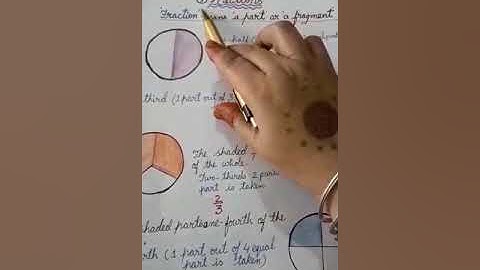 Fractions
'Fraction means 'a part or a fragment
half (
third (1 part out of 3
The shaded
of the whole.
Two-thirds 2
part is taken
2/3
shaded part one-fourth of the
rth (1 part out of 4 equal
part is taken)